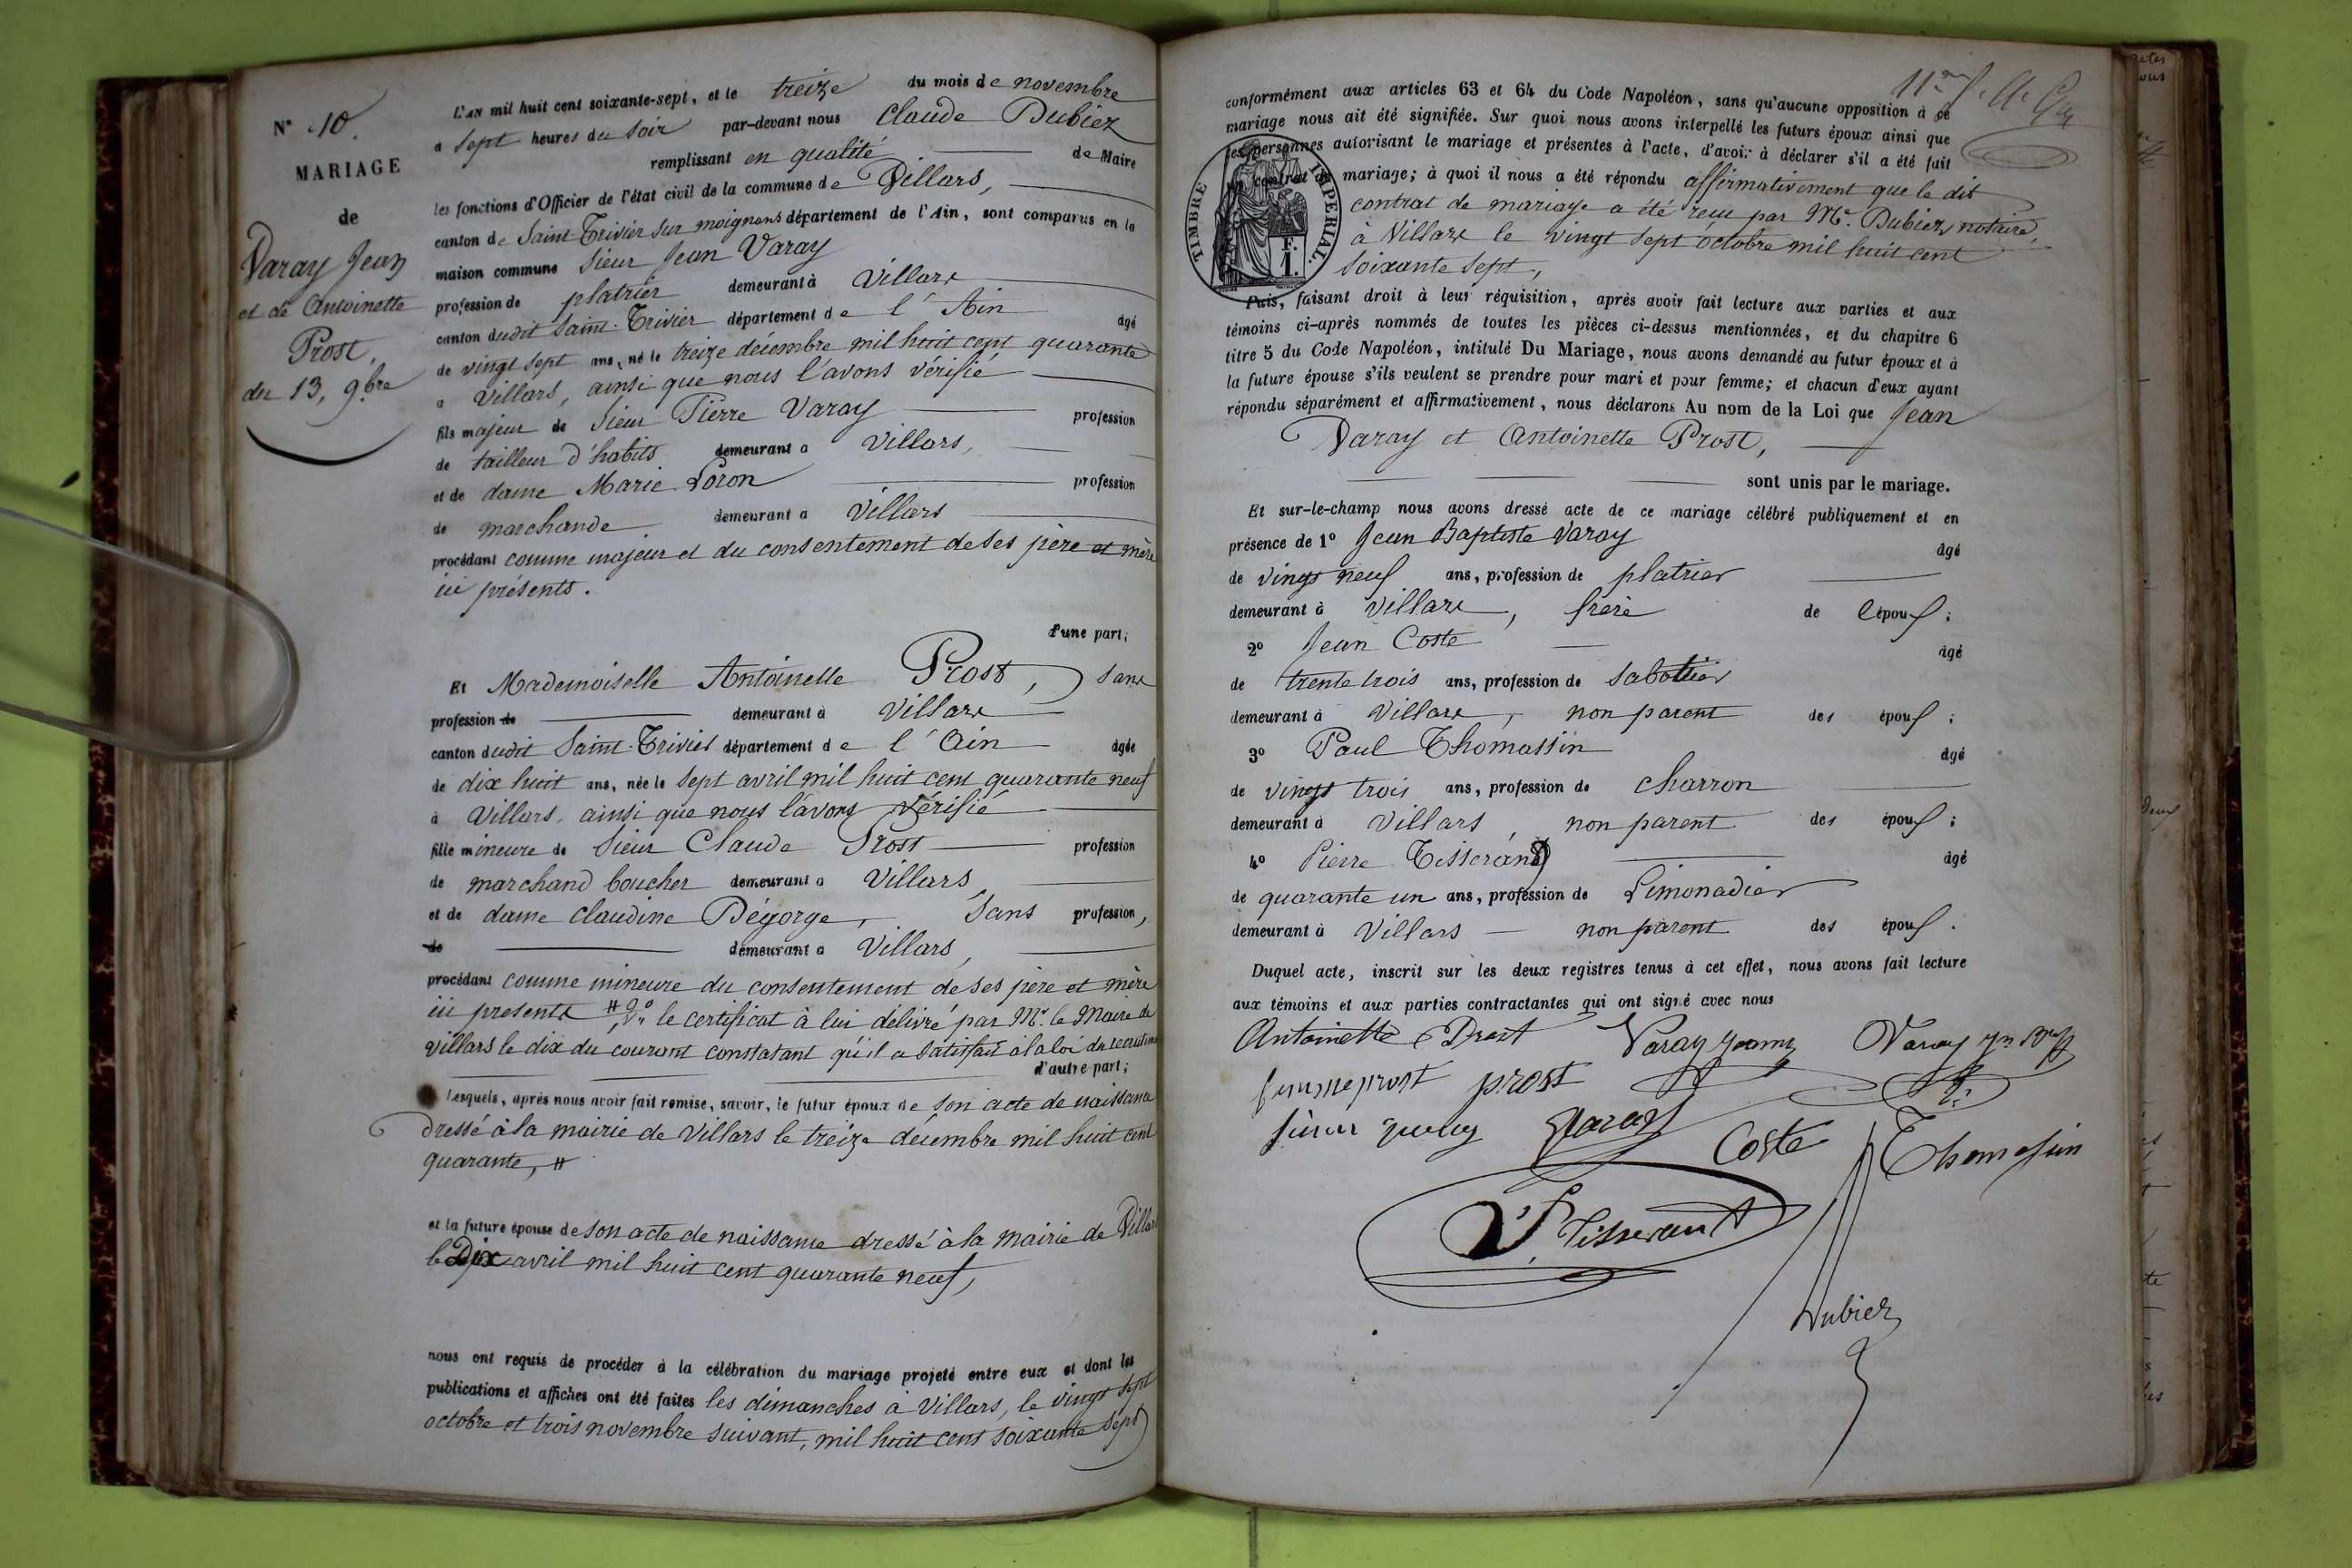 N° 10.
MARIAGE
de
Varay Jean
et de Antoinette
Prost.
du 13, 9bre
L'AN mil huit cent soixante-sept, et le treize du mois de novembre
à sept heures du soir par-devant nous Claude Dubiez
remplissant en qualité de Maire
les fonctions d'Officier de l'état civil de la commune de Villars,
canton de Saint Trivier sur moignans département de l'Ain, sont comparus en la
maison commune Sieur Jean Varay
profession de platrier demeurant à Villars
canton dudit Saint-Trivier département de l'Ain âgé
de vingt sept ans, né le treize décembre mil huit cent quarante
à Villars, ainsi que nous l'avons vérifié
fils majeur de Sieur Pierre Varay profession
de tailleur d'habits demeurant à Villars,
et de dame Marie Loron profession
de marchande demeurant à Villars
procédant comme majeur et du consentement de ses père et mère
ici présents.
d'une part;
Et Mademoiselle Antoinette Prost, sans
profession de demeurant à Villars
canton dudit Saint-Trivier département de l'Ain âgée
de dix huit ans, née le sept avril mil huit cent quarante neuf
à Villars, ainsi que nous l'avons vérifié
fille mineure de Sieur Claude Prost profession
de marchand boucher demeurant à Villars,
et de dame Claudine Dégorge, sans profession,
de demeurant à Villars,
procédant comme mineure du consentement de ses père et mère
ici présents # 2° le certificat à lui délivré par Mr. le Maire de
Villars le dix du courant constatant qu'il a satisfait à la loi du
d'autre part;
Lesquels, après nous avoir fait remise, savoir, le futur époux de son acte de naissance
dressé à la mairie de Villars le treize décembre mil huit cent
quarante, #
et la future épouse de son acte de naissance dressé à la mairie de Villars
le Dix avril mil huit cent quarante neuf,
nous ont requis de procéder à la célébration du mariage projeté entre eux et dont les
publications et affiches ont été faites les dimanches à Villars, le vingt sept
octobre et trois novembre suivant, mil huit cent soixante sept
11
conformément aux articles 63 et 64 du Code Napoléon, sans qu'aucune opposition à ce
mariage nous ait été signifiée. Sur quoi nous avons interpellé les futurs époux ainsi que
les personnes autorisant le mariage et présentes à l'acte, d'avoir à déclarer s'il a été fait
contrat de mariage; à quoi il nous a été répondu affirmativement que le dit
contrat de mariage a été reçu par Me. Dubiez, notaire,
à Villars le vingt sept octobre mil huit cent
soixante sept,
TIMBRE IMPERIAL.
F.
1.
Puis, faisant droit à leur réquisition, après avoir fait lecture aux parties et aux
témoins ci-après nommés de toutes les pièces ci-dessus mentionnées, et du chapitre 6
titre 5 du Code Napoléon, intitulé Du Mariage, nous avons demandé au futur époux et à
la future épouse s'ils veulent se prendre pour mari et pour femme; et chacun d'eux ayant
répondu séparément et affirmativement, nous déclarons Au nom de la Loi que Jean
Varay et Antoinette Prost,
sont unis par le mariage.
Et sur-le-champ nous avons dressé acte de ce mariage célébré publiquement et en
présence de 1° Jean Baptiste Varay âgé
de vingt neuf ans, profession de platrier
demeurant à Villars, frère de l'époux;
2° Jean Coste âgé
de trente trois ans, profession de sabotier
demeurant à Villars, non parent des époux;
3° Paul Thomassin âgé
de vingt trois ans, profession de charron
demeurant à Villars, non parent des époux;
4° Pierre Tisserand âgé
de quarante un ans, profession de Limonadier
demeurant à Villars non parent des époux.
Duquel acte, inscrit sur les deux registres tenus à cet effet, nous avons fait lecture
aux témoins et aux parties contractantes qui ont signé avec nous
Antoinette Prost Varay Jean Varay
femme prost prost
Varay Coste Thomassin
P. Tisserant
Dubiez